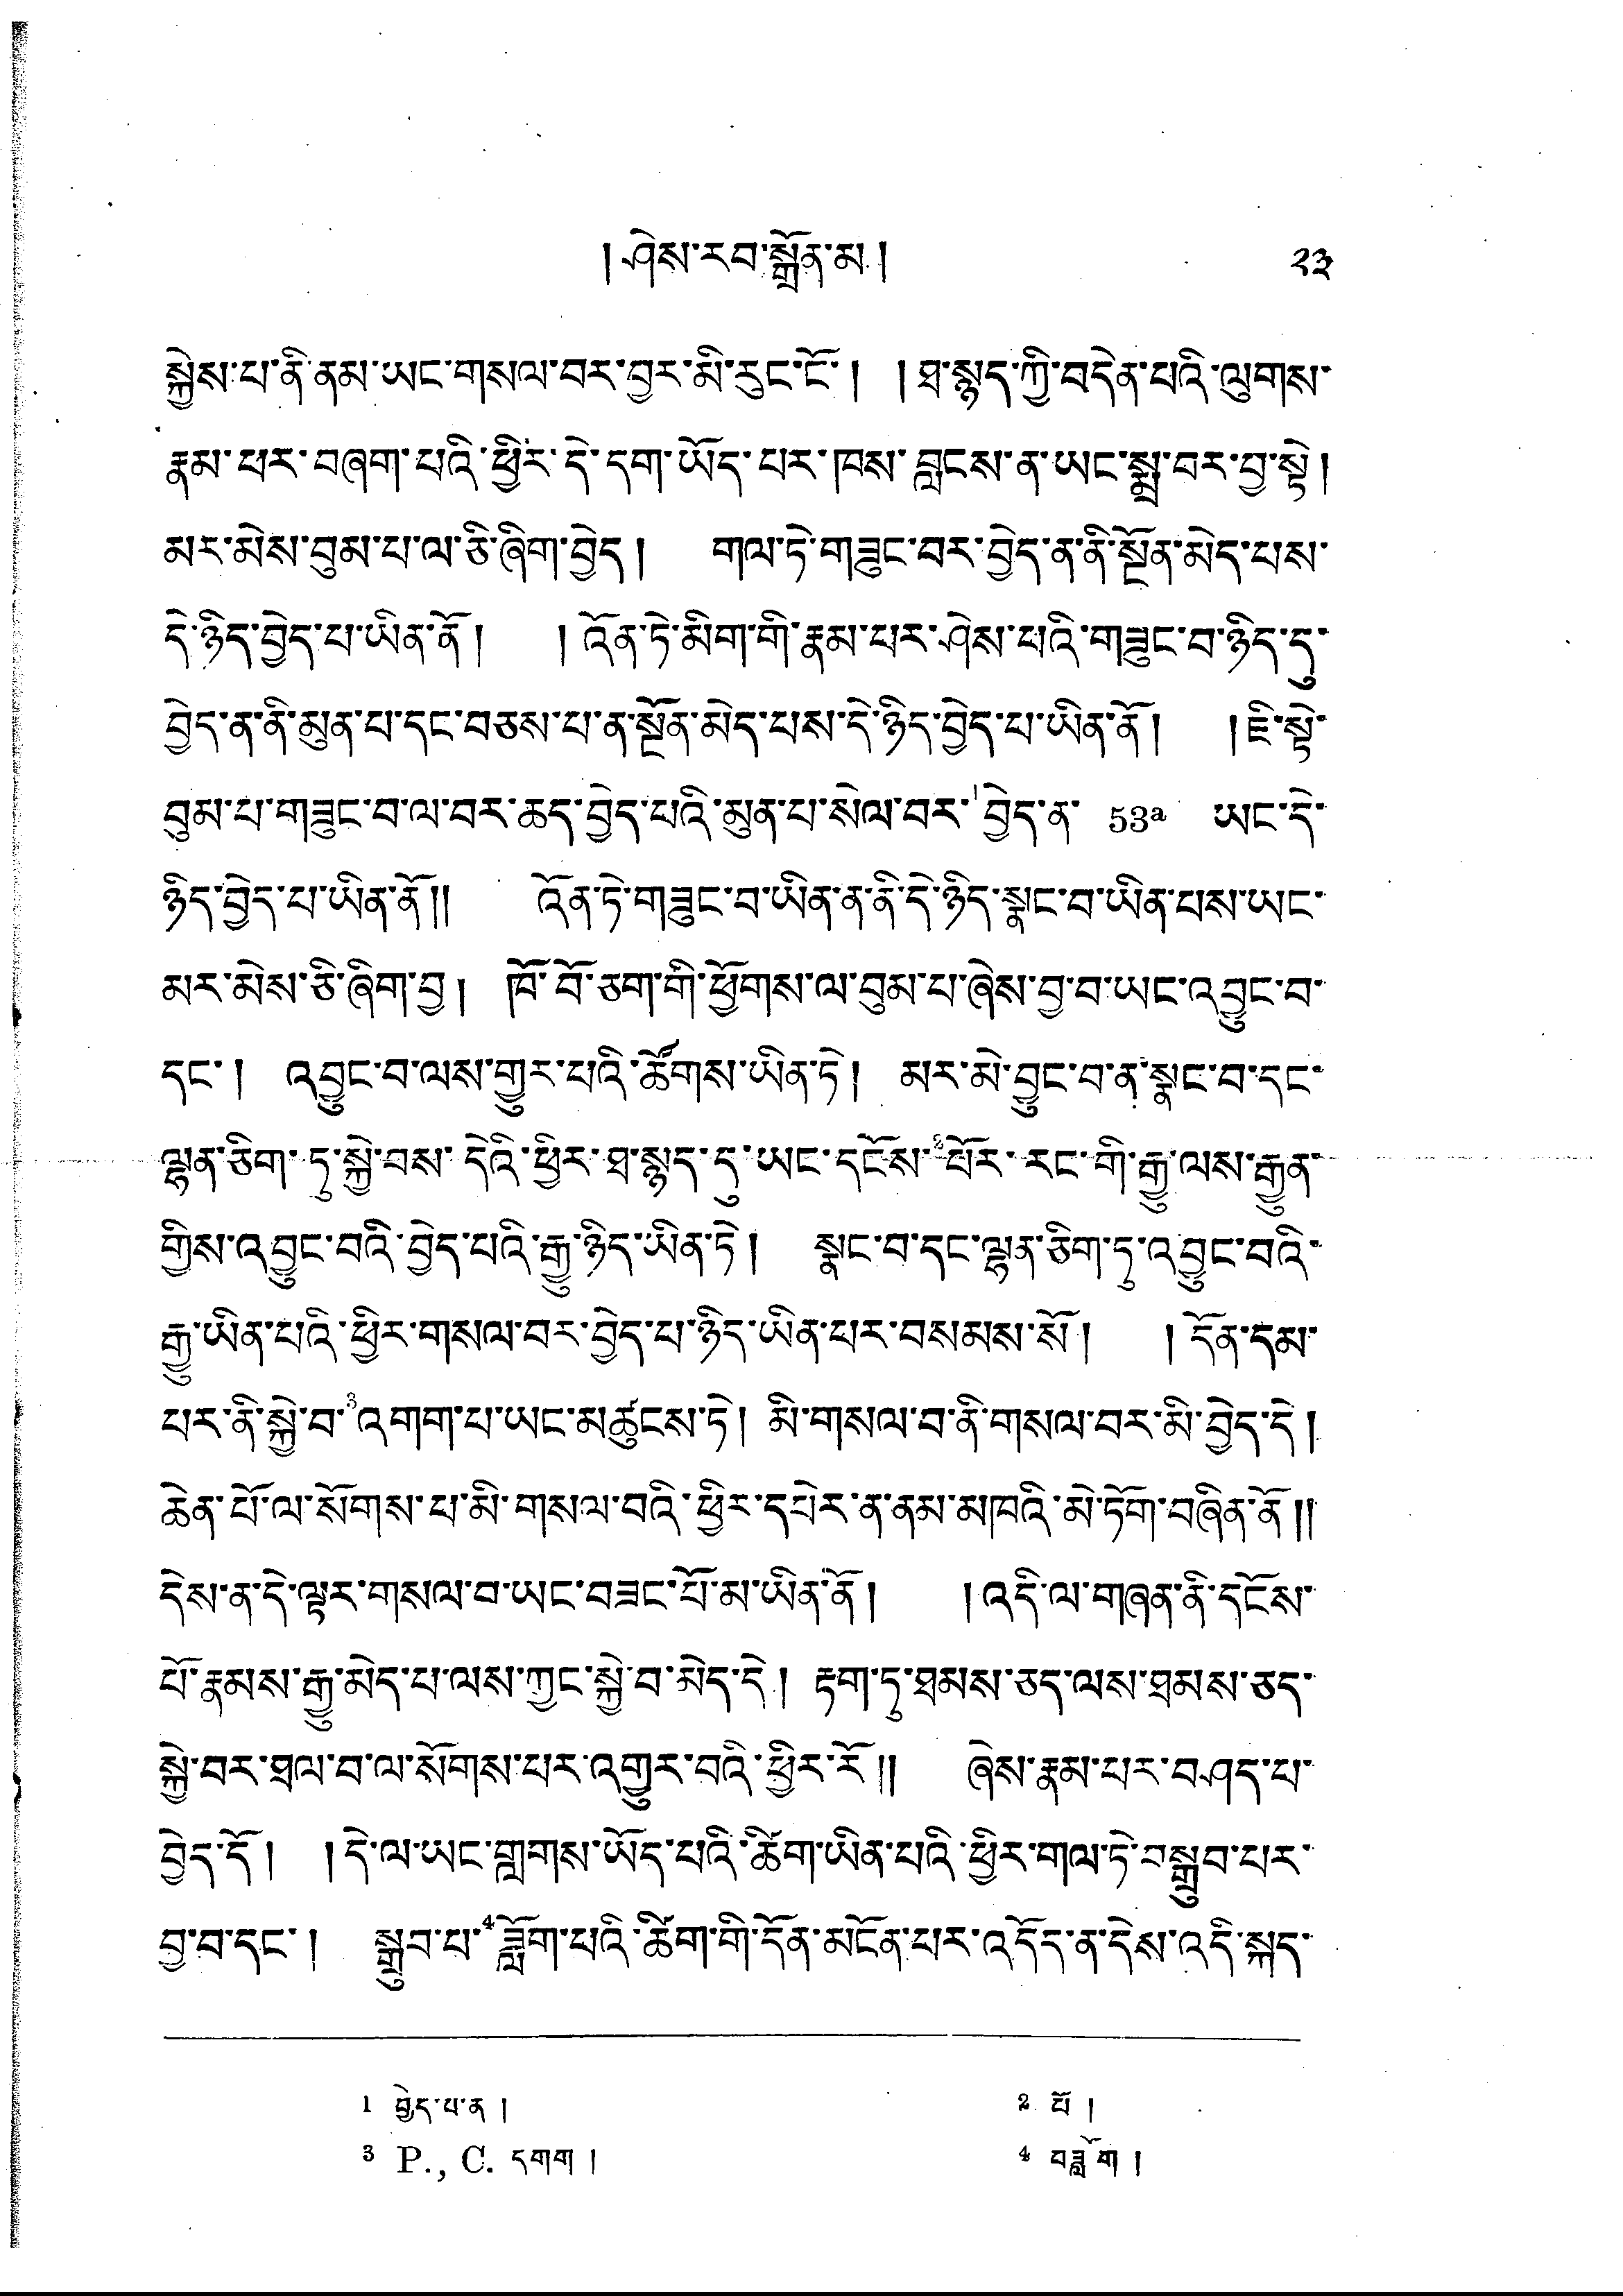 །ཤེས་རབ་སྒྲོན་མ།	༢༣
སྐྱེས་པ་ནི་ནམ་ཡང་གསལ་བར་བྱར་མི་རུང་ངོ་། །ཐ་སྙད་ཀྱི་བདེན་པའི་ལུགས་
རྣམ་པར་བཞག་པའི་ཕྱིར་དེ་དག་ཡོད་པར་ཁས་བླངས་ན་ཡང་སྨྲ་བར་བྱ་སྟེ།
མར་མེས་བུམ་པ་ལ་ཅི་ཞིག་བྱེད། གལ་ཏེ་གཟུང་བར་བྱེད་ན་ནི་སྔོན་མེད་པས་
དེ་ཉིད་བྱེད་པ་ཡིན་ནོ། །འོན་ཏེ་མིག་གི་རྣམ་པར་ཤེས་པའི་གཟུང་བ་ཉིད་དུ་
བྱེད་ན་ནི་མུན་པ་དང་བཅས་པ་ན་སྔོན་མེད་པས་དེ་ཉིད་བྱེད་པ་ཡིན་ནོ། །ཇི་སྟེ་
བུམ་པ་གཟུང་བ་ལ་བར་ཆད་བྱེད་པའི་མུན་པ་སེལ་བར་¹བྱེད་ན་ 53a ཡང་དེ་
ཉིད་བྱེད་པ་ཡིན་ནོ།། འོན་ཏེ་གཟུང་བ་ཡིན་ན་ནི་དེ་ཉིད་སྣང་བ་ཡིན་པས་ཡང་
མར་མེས་ཅི་ཞིག་བྱ། ཁོ་བོ་ཅག་གི་ཕྱོགས་ལ་བུམ་པ་ཞེས་བྱ་བ་ཡང་འབྱུང་བ་
དང་། འབྱུང་བ་ལས་གྱུར་པའི་ཚོགས་ཡིན་ཏེ། མར་མེ་བྱུང་བ་ན་སྣང་བ་དང་
ལྷན་ཅིག་ཏུ་སྐྱེ་བས་དེའི་ཕྱིར་ཐ་སྙད་དུ་ཡང་དངོས་²པོར་རང་གི་རྒྱུ་ལས་རྒྱུན་
གྱིས་འབྱུང་བའི་བྱེད་པའི་རྒྱུ་ཉིད་ཡིན་ཏེ། སྣང་བ་དང་ལྷན་ཅིག་ཏུ་འབྱུང་བའི་
རྒྱུ་ཡིན་པའི་ཕྱིར་གསལ་བར་བྱེད་པ་ཉིད་ཡིན་པར་བསམས་སོ། །དོན་དམ་
པར་ནི་སྐྱེ་བ་³འགག་པ་ཡང་མཚུངས་ཏེ། མི་གསལ་བ་ནི་གསལ་བར་མི་བྱེད་དེ།
ཆེན་པོ་ལ་སོགས་པ་མི་གསལ་བའི་ཕྱིར་དཔེར་ན་ནམ་མཁའི་མེ་ཏོག་བཞིན་ནོ།།
དེས་ན་དེ་ལྟར་གསལ་བ་ཡང་བཟང་པོ་མ་ཡིན་ནོ། །འདི་ལ་གཞན་ནི་དངོས་
པོ་རྣམས་རྒྱུ་མེད་པ་ལས་ཀྱང་སྐྱེ་བ་མེད་དེ། རྟག་ཏུ་ཐམས་ཅད་ལས་ཐམས་ཅད་
སྐྱེ་བར་ཐལ་བ་ལ་སོགས་པར་འགྱུར་བའི་ཕྱིར་རོ།། ཞེས་རྣམ་པར་བཤད་པ་
བྱེད་དོ། །དེ་ལ་ཡང་གླགས་ཡོད་པའི་ཚིག་ཡིན་པའི་ཕྱིར་གལ་ཏེ་བསྒྲུབ་པར་
བྱ་བ་དང་། སྒྲུབ་པ་⁴ཟློག་པའི་ཚིག་གི་དོན་མངོན་པར་འདོད་ན་དེས་འདི་སྐད་
1 བྱེད་པ་ན།	2 པོ།
3 P., C. དགག།	4 བཟློག།